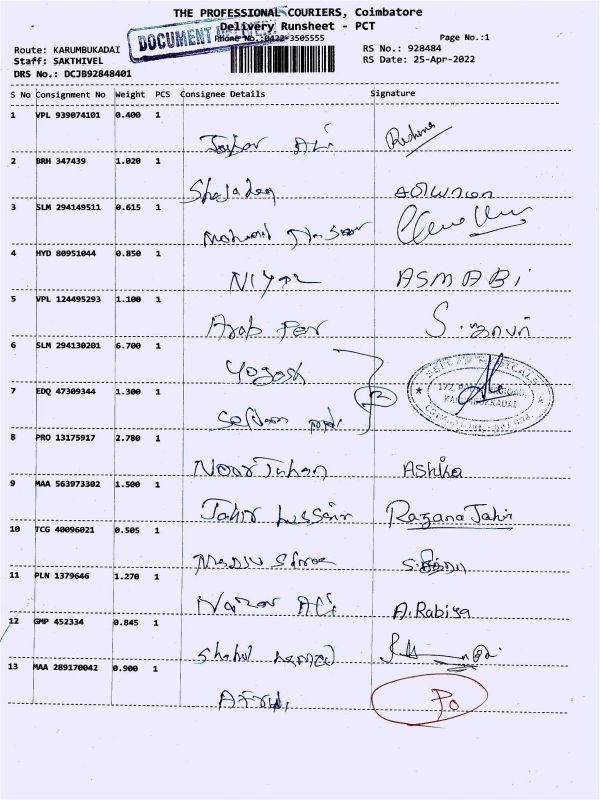 THE PROFESSIONAL COURIERS, Coimbatore
Delivery Runsheet - PCT
DOCUMENT
Phone No.:0422-3505555
Page No.:1
Route: KARUMBUKADAI
RS No.: 928484
Staff: SAKTHIVEL
RS Date: 25-Apr-2022
DRS No.: DCJB92848401
S No Consignment No Weight PCS Consignee Details Signature
1 VPL 939074101 0.400 1
Ali Reshma
2 BRH 347439 1.020 1
3 SLM 294149511 0.615 1
4 HYD 80951044 0.850 1
NIYAZ ASMABI
5 VPL 124495293 1.100 1
Arab
6 SLM 294130201 6.700 1
Yogesh
7 EDQ 47309344 1.300 1
MEDICALS
172
KARUMBUKADAI
8 PRO 13175917 2.780 1
Noor Juhan Ashika
9 MAA 563973302 1.500 1
Jahir Hussain Razana Jahir
10 TCG 40096021 0.505 1
11 PLN 1379646 1.270 1
Nazar Ali A.Rabiya
12 GMP 452334 0.845 1
Shahul
13 MAA 289170042 0.900 1
Po